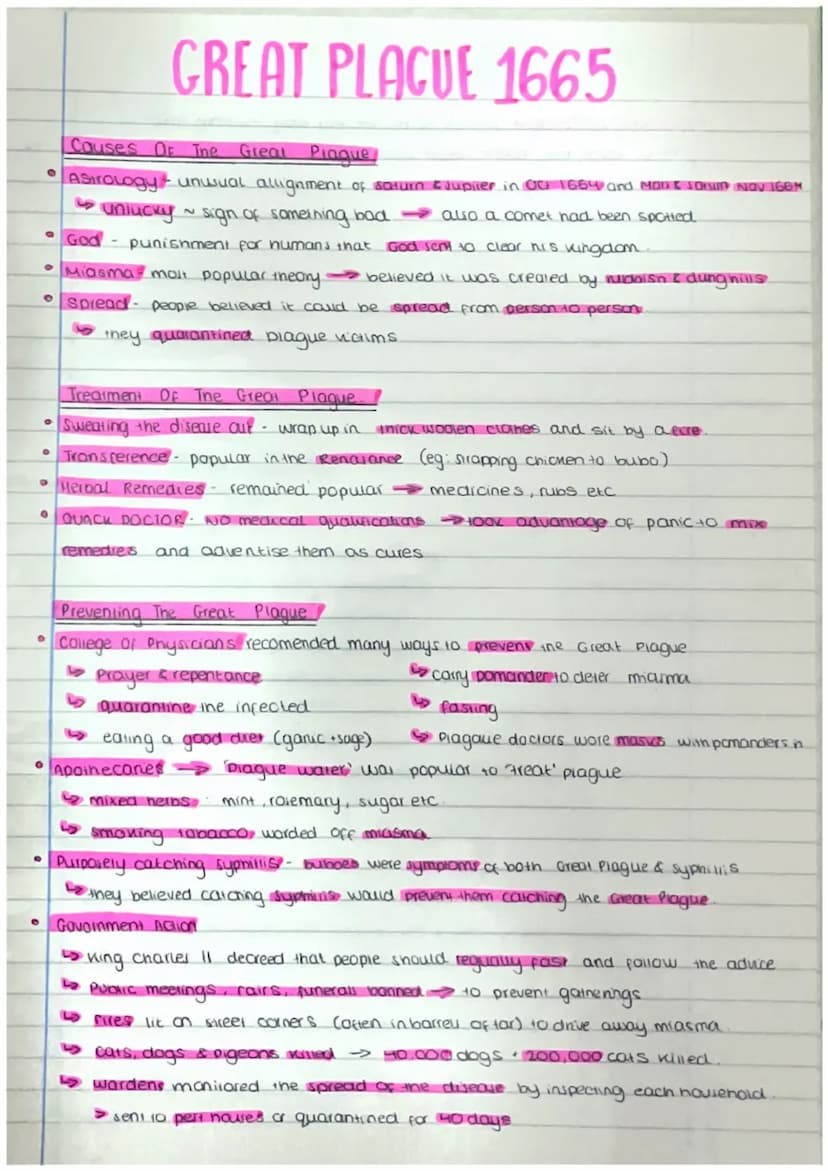 GREAT PLAGUE 1665
Causes Of The Great Plague
• Astrology - unusual allignment of saturn & Jupiter in Oct 1664 and Mars & Saturn Nov 1664
↳ unlucky ~ sign of something bad → also a comet had been spotted.
• God - punishment for humans that God sent to clear his kingdom.
• Miasma - most popular theory → believed it was created by rubbish & dunghills
• Spread - people believed it could be spread from person to person
↳ they quarantined plague victims
Treatment Of The Great Plague.
• Sweating the disease out - wrap up in thick woolen clothes and sit by a fire.
• Transference - popular in the Renaisance (eg: strapping chicken to bubo)
• Herbal Remedies - remained popular → medicines, rubs etc
• QUACK DOCTOR - NO medical qualifications → took advantage of panic to mix
remedies and adventise them as cures
Preventing The Great Plague
• College Of Physicians recomended many ways to prevent the Great Plague
↳ Prayer & repentance ↳ carry pomander to deter miasma
↳ quarantine the infected ↳ fasting
↳ eating a good diet (garlic + sage) ↳ Plagaue doctors wore masks with pomanders in
• Apothecaries → 'Plague water' was popular to 'treat' plague
↳ mixed herbs : mint, rosemary, sugar etc.
↳ smoking tobacco, warded off miasma
• Purposely catching syphillis - buboes were symptoms of both Great Plague & syphillis
↳ they believed catching syphillis would prevent them catching the Great Plague.
• Government Action
↳ King Charles II decreed that people should regually fast and follow the advice
↳ Public meetings, fairs, funerals banned → to prevent gatherings
↳ fires lit on street corners (often in barrels of tar) to drive away miasma.
↳ cats, dogs & pigeons killed → 40,000 dogs + 200,000 cats killed.
↳ wardens monitored the spread of the disease by inspecting each household.
> sent to pest houses or quarantined for 40 days